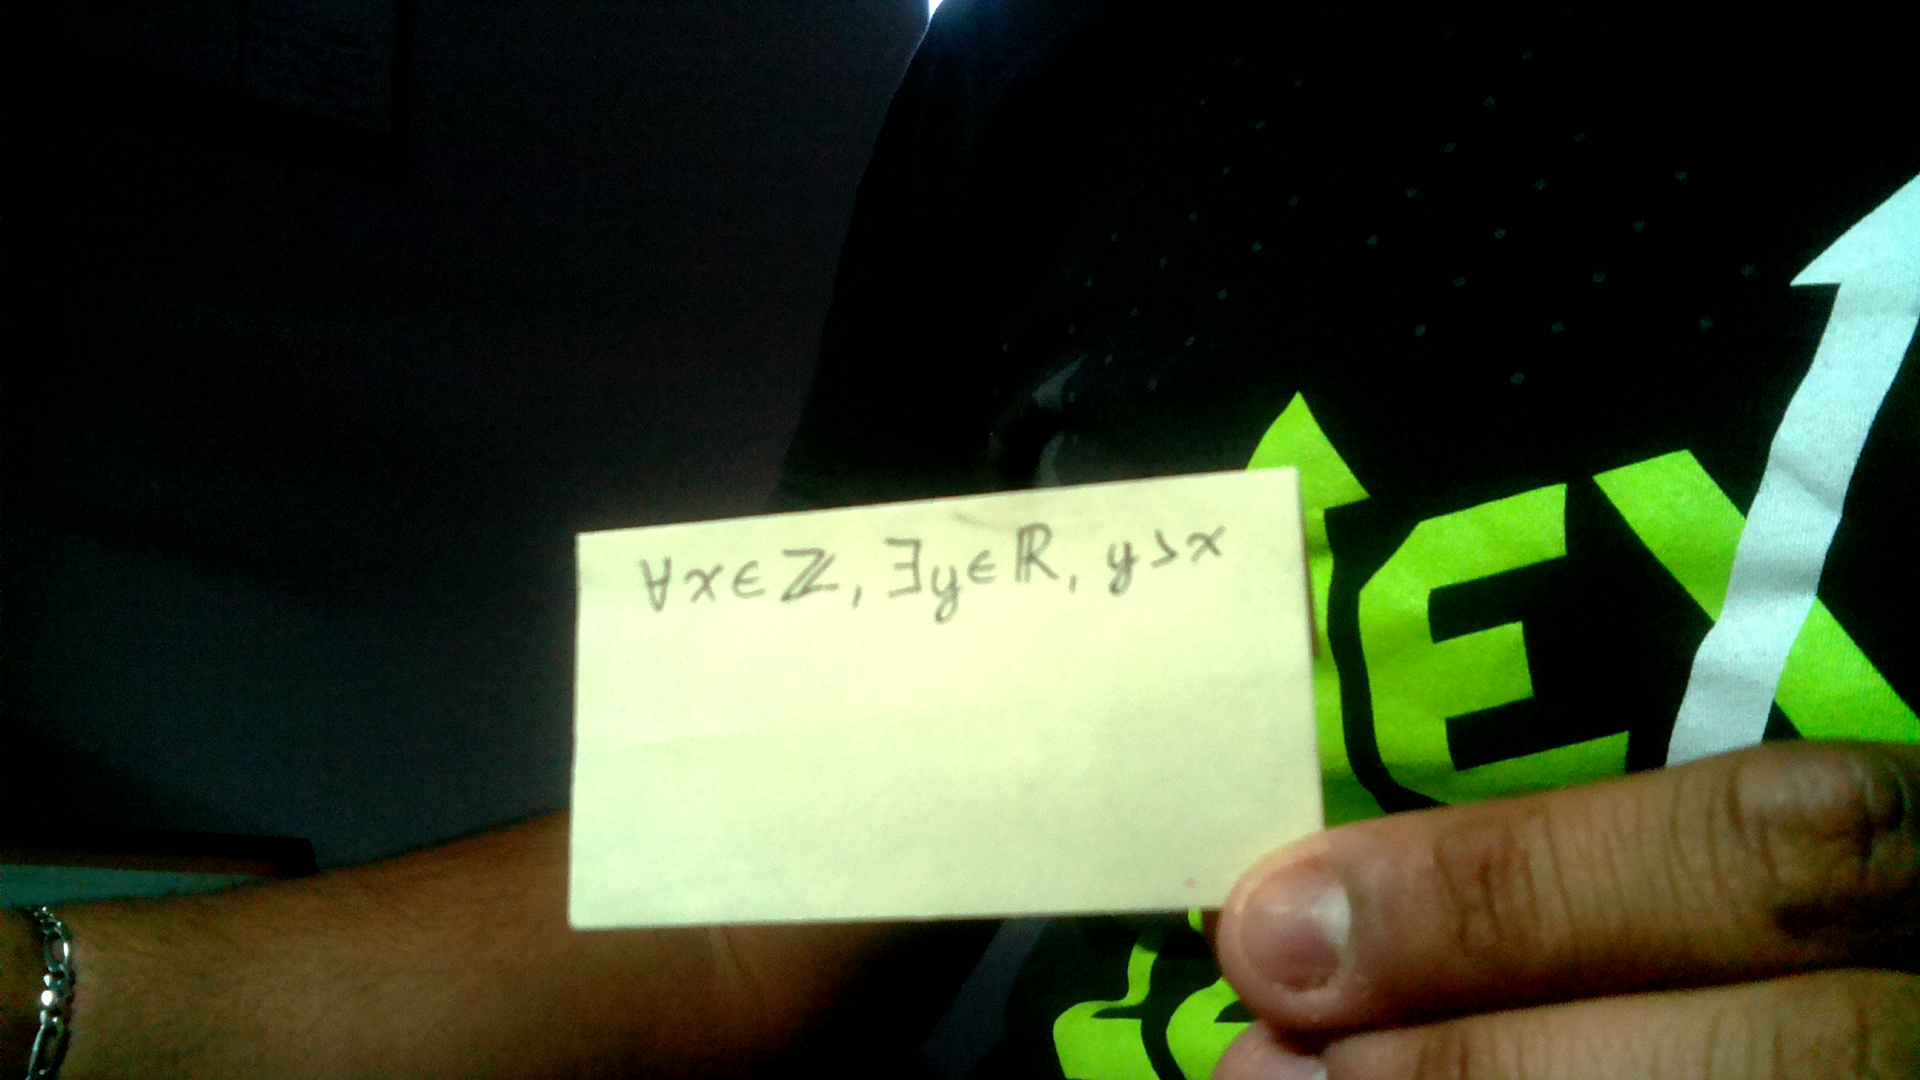 ∀x∈ℤ, ∃y∈ℝ, y>x
EX